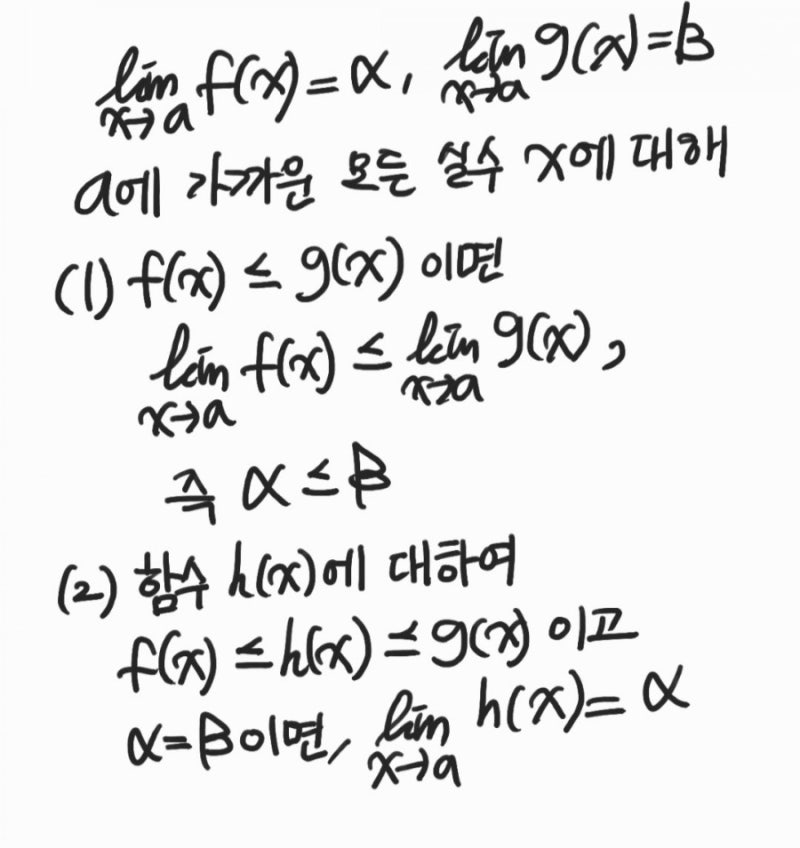 lim x→a f(x) = α, lim x→a g(x) = β
a에 가까운 모든 실수 x에 대해
(1) f(x) ≤ g(x) 이면
lim x→a f(x) ≤ lim x→a g(x),
즉 α ≤ β
(2) 함수 h(x)에 대하여
f(x) ≤ h(x) ≤ g(x) 이고
α=β이면, lim x→a h(x) = α